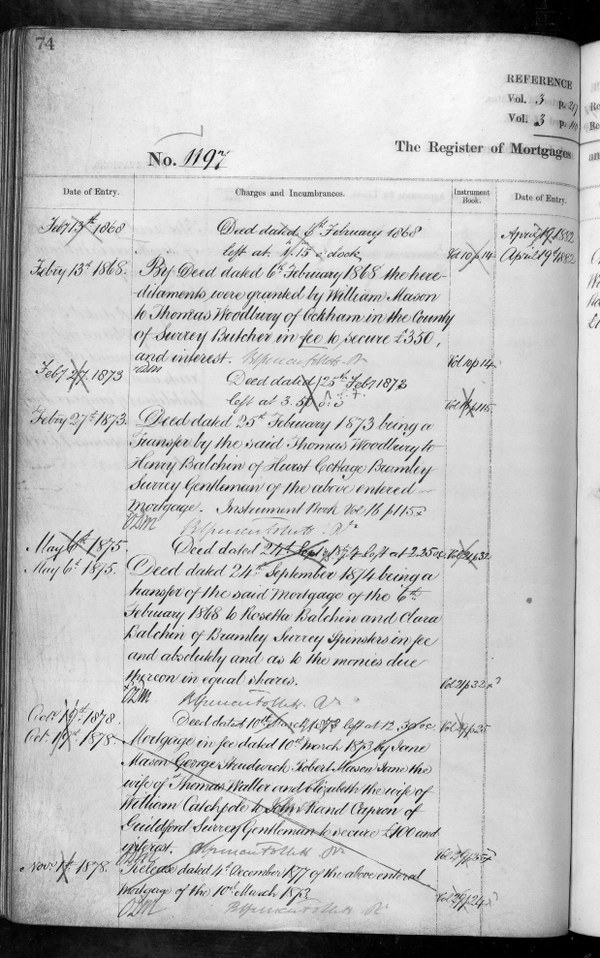 74
REFERENCE
Vol. 3 p. 217
Vol. 3 p.
No. 1197
The Register of Mortgages
Date of Entry.
Charges and Incumbrances.
Instrument Book.
Date of Entry.
Feby 13th 1868
Deed dated 6th February 1868
left at 1.15 o'clock
Vol 10 p 14
April 19 1882
April 19th 1882
Febry 13th 1868.
By Deed dated 6th February 1868 the here-
ditaments were granted by William Mason
to Thomas Woodbury of Ockham in the County
of Surrey Butcher in fee to secure £350,
and interest.
Vol 10 p 14
Feby 27. 1873
Deed dated 25th Feby 1873
left at 3.5
Vol 16 p 115
Febry 27th 1873.
Deed dated 25th February 1873 being a
Transfer by the said Thomas Woodbury to
Henry Balchin of Hurst Cottage Bramley
Surrey Gentleman of the above entered
Mortgage. Instrument Book Vol 16 p 115
May 6th 1875.
Deed dated 24th Sept 1874 left at 2.25
Vol 21 p 32
May 6th 1875.
Deed dated 24th September 1874 being a
transfer of the said Mortgage of the 6th
February 1868 to Rosetta Balchin and Clara
Balchin of Bramley Surrey Spinsters in fee
and absolutely and as to the monies due
thereon in equal shares.
Vol 21 p 32
Octr 19th 1878.
Deed dated 10th March 1873 left at 12.30
Oct 19th 1878.
Mortgage in fee dated 10th March 1873 by Jane
Mason George Robert Mason Jane the
wife of Thomas Waller and Elizabeth the wife of
William Catchpole to John Rand Capron of
Guildford Surrey Gentleman to secure £100 and
interest.
Nov 1st 1878.
Release dated 4th December 1877 of the above entered
Mortgage of the 10th March 1873